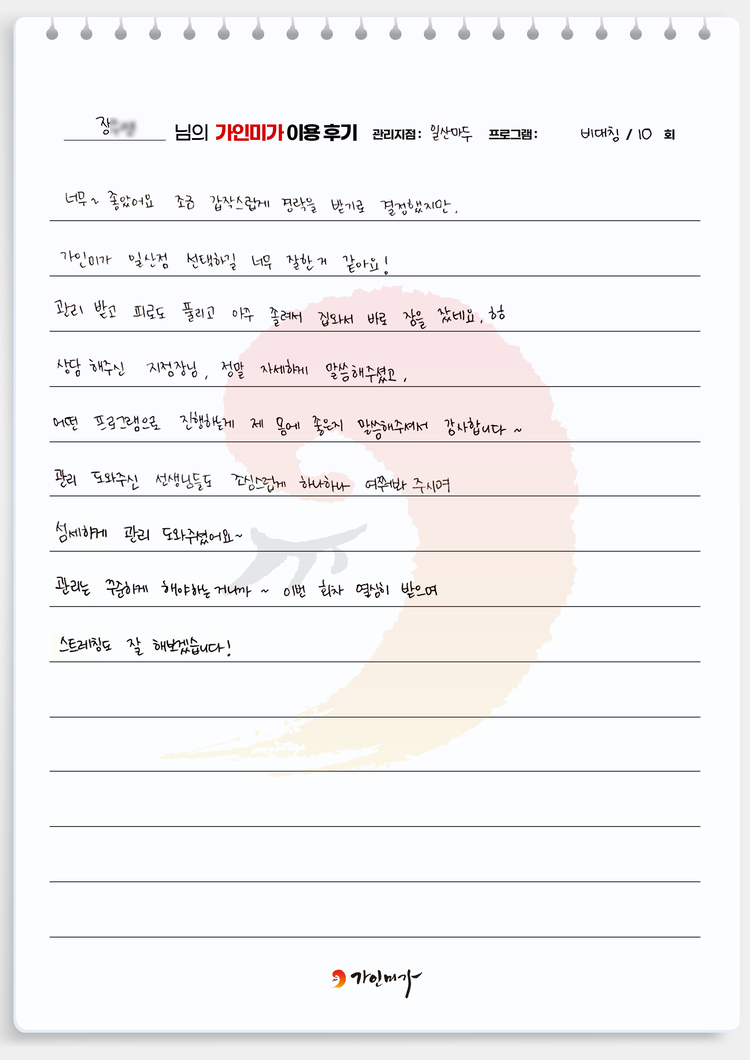 장 님의 가인미가 이용 후기 관리지점: 일산마두 프로그램: 비대칭 / 10 회
너무~ 좋았어요 조금 갑작스럽게 경락을 받기로 결정했지만,
가인미가 일산점 선택하길 너무 잘한 거 같아요!
관리 받고 피로도 풀리고 아주 졸려서 집와서 바로 잠을 잤네요, ㅎㅎ
상담 해주신 지점장님, 정말 자세하게 말씀해주셨고,
어떤 프로그램으로 진행하는게 제 몸에 좋은지 말씀해주셔서 감사합니다 ~
관리 도와주신 선생님들도 조심스럽게 하나하나 여쭤봐 주시며
섬세하게 관리 도와주셨어요~
관리는 꾸준하게 해야하는거니까 ~ 이번 회차 열심히 받으며
스트레칭도 잘 해보겠습니다!
가인미가